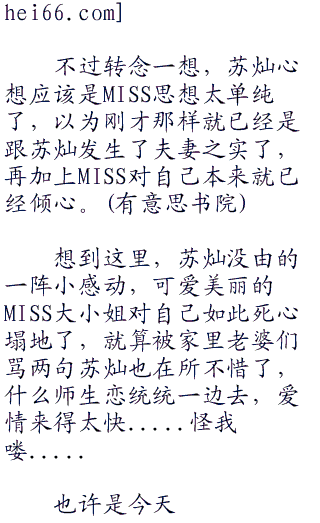 hei66.com]
不过转念一想，苏灿心
想应该是MISS思想太单纯
了，以为刚才那样就已经是
跟苏灿发生了夫妻之实了，
再加上MISS对自己本来就已
经倾心。(有意思书院)
想到这里，苏灿没由的
一阵小感动，可爱美丽的
MISS大小姐对自己如此死心
塌地了，就算被家里老婆们
骂两句苏灿也在所不惜了，
什么师生恋统统一边去，爱
情来得太快.....怪我
喽.....
也许是今天